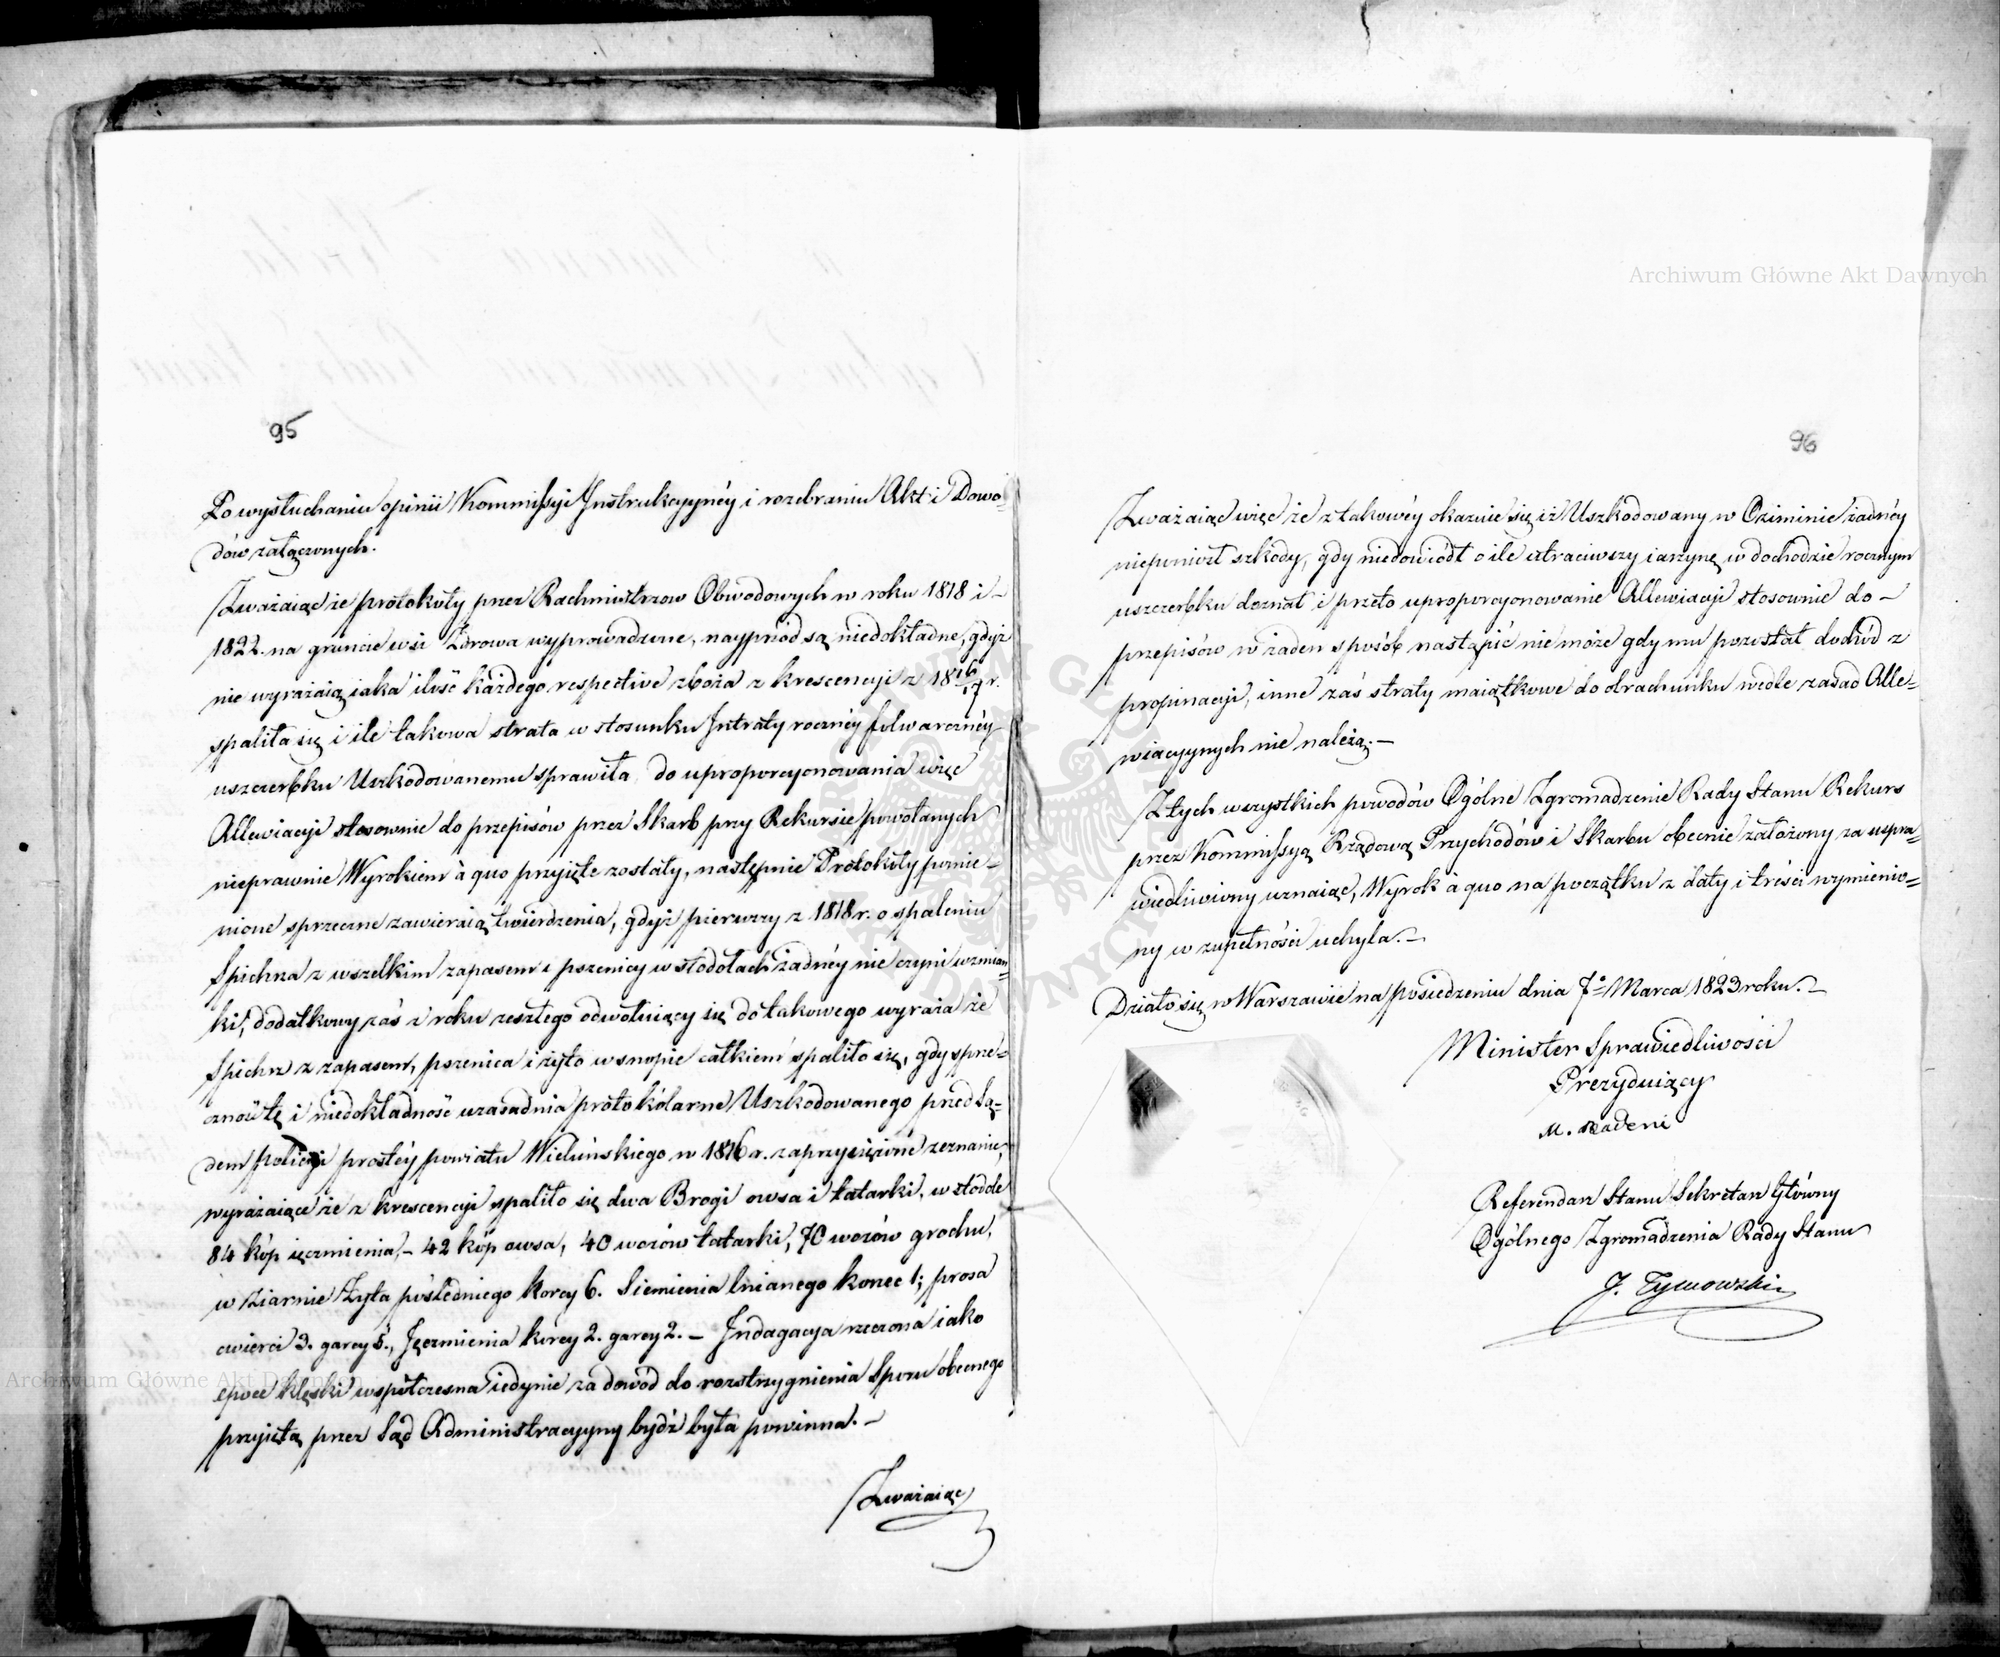 95
Po wysłuchaniu opinii Kommissyi Instrukcyynéy i rozebraniu Akt i Dowo=
dów załączonych.
Zważaiąc że protokuły przez Rachmistrzow Obwodowych w roku 1818 i
1822. na gruncie wsi Zdrowa wyprowadzone, nayprzód są niedokładne, gdyż
nie wyrażaią iaka ilość każdego respective zboża z krescencyi z 1816/17 r.
spaliła się i ile takowa strata w stosunku Intraty rocznéy folwarcznéy
uszczerbku Uszkodowanemu sprawiła do uproporcyonowania więc
Allewiacyi stosownie do przepisów przez Skarb przy Rekursie powołanych
nieprawnie Wyrokiem à quo przyięte zostały, następnie Protokuły pomie=
nione sprzeczne zawieraią twierdzenia, gdyż pierwszy z 1818 r. o spaleniu
Spichrza z wszelkim zapasem i pszenicy w stodołach żadnéy nie czyni wzmian=
ki, dodatkowy zaś z roku zeszłego odwołuiący się do takowego wyraża że
Spichrz z zapasem, pszenica i żyto w snopie całkiem spaliło się, gdy sprze=
czność tę i niedokładność uzasadnia protokólarne Uszkodowanego przed Są=
dem policyi prostéy powiatu Wieluńskiego w 1816 r. zaprzysiężone zeznanie,
wyrażaiące że z krescencyi spaliło się dwa Brogi owsa i tatarki, w stodole
84 kóp ięczmienia, – 42 kóp owsa, 40 wozów tatarki, 70 wozów grochu,
w ziarnie Żyta poślédniego korcy 6. Siemienia lnianego korzec 1; prosa
cwierci 3. garcy 5., Jęczmienia korcy 2. garcy 2. – Indagacya rzeczona iako
epoce klęski współczesna iedynie za dowód do rozstrzygnienia Sporu obecnego
przyiętą przez Sąd Administracyyny bydź była powinna. –
Zważaiąc
96
Zważaiąc więc że z takowéy okazuie się iż Uszkodowany w Oziminie żadnéy
nieponiozł szkody, gdy niedowiódł o ile utraciwszy iarzynę w dochodzie rocznym
uszczerbku doznał i przeto uproporcyonowanie Allewiacyi stosownie do –
przepisów w żaden sposób nastąpić nie może gdy mu pozostał dochód z
propinacyi, inne zaś straty maiątkowe do obrachunku wedle zasad Alle=
wiacyynych nie należą. –
Z tych wszystkich powodów Ogólne Zgromadzenie Rady Stanu Rekurs
przez Kommissyą Rządową Przychodów i Skarbu obecnie założony za uspra=
wiedliwiony uznaiąc, Wyrok à quo na początku z daty i treści wymienio=
ny w zupełności uchyla. –
Działo się w Warszawie na posiedzeniu dnia 7º Marca 1823 roku. –
Minister Sprawiedliwości
Prezyduiący
M. Badeni
Referendarz Stanu Sekretarz Główny
Ogólnego Zgromadzenia Rady Stanu
J. Tymowski
Archiwum Główne Akt Dawnych
Archiwum Główne Akt Dawnych
ARCHIWUM GŁÓWNE AKT DAWNYCH